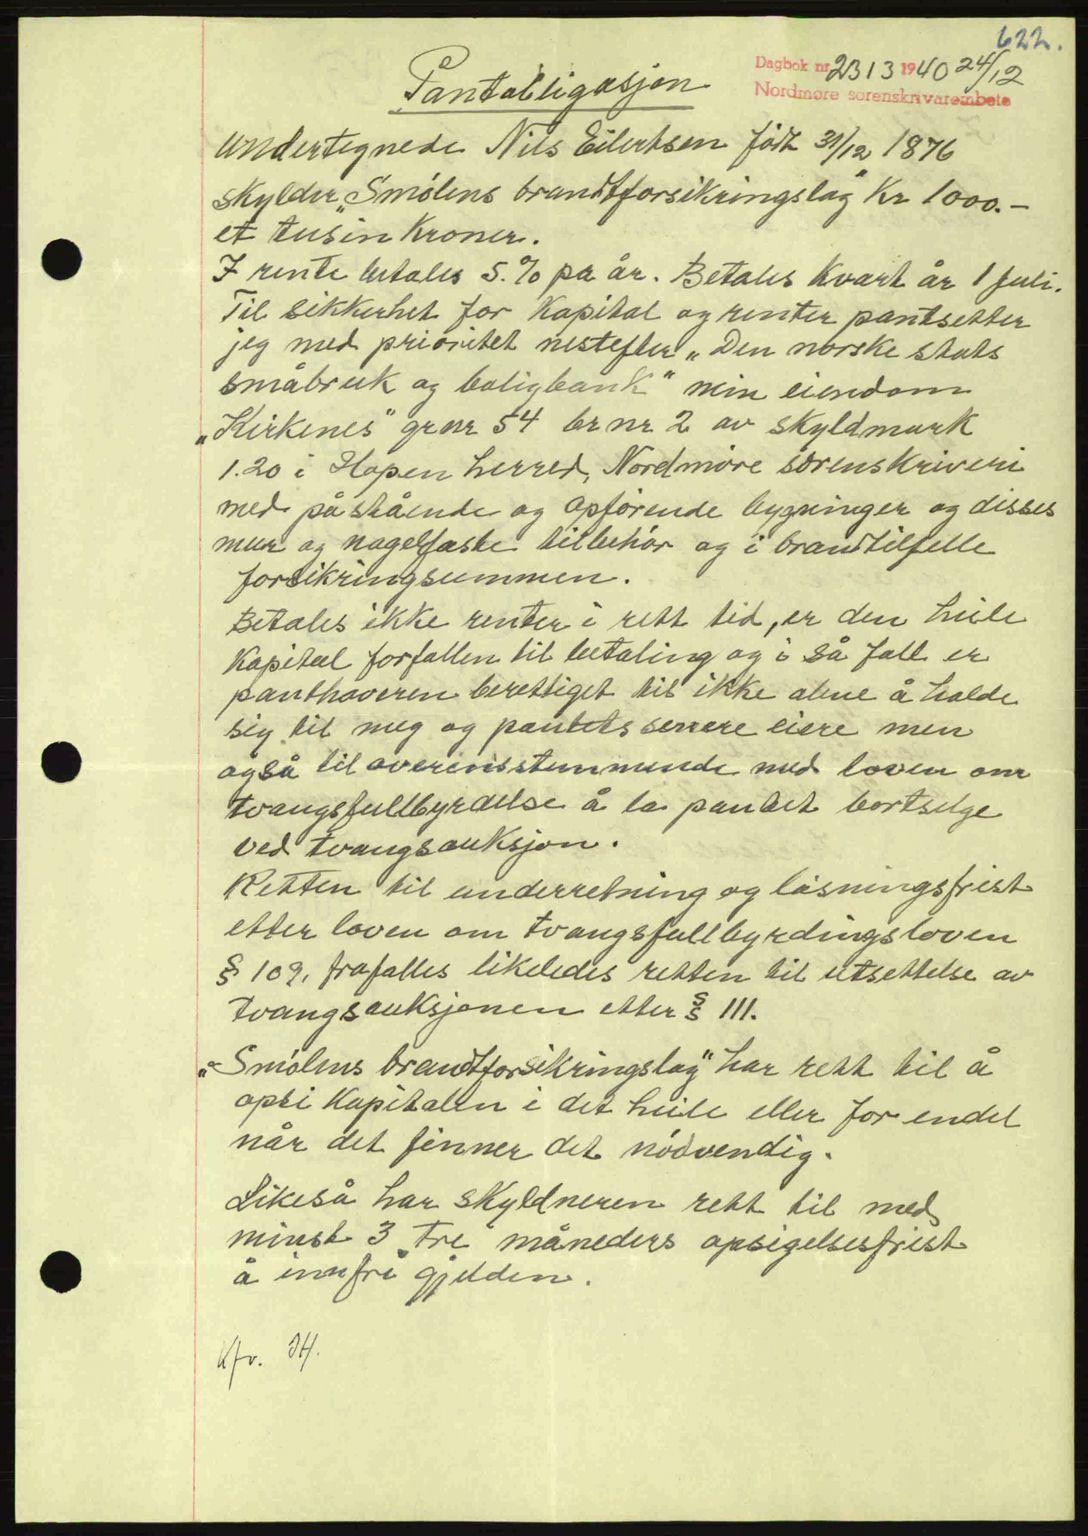 622.
Dagbok nr. 2313 1940 24/12
Nordmøre sorenskrivarembete
Pantobligasjon
Undertegnede Nils Eilertsen født 31/12 1876
skylder „Smølens brandtforsikringslag" Kr 1000.-
et tusin Kroner.
I rente betales 5.% pa år. Betales Kvart år 1 juli.
Til sikkerhet for Kapital og renter pantsetter
jeg med prioritet nestefter „Den norske stats
småbruk og boligbank" min eiendom
„Kirkenes" gr nr 54 br nr 2 av skyldmark
1.20 i Hopen herred, Nordmøre sorenskriveri
med påstående og opførende bygninger og disses
mur og nagelfaste tilbehör og i brandtilfelle
forsikringsummen.
Betales ikke renter i rett tid, er den heile
Kapital forfallen til betaling og i så fall er
panthaveren berettiget til ikke alene å holde
sig til meg og pantets senere eiere men
også til overensstemmende med loven om
tvangsfullbyrdelse å la pantet bortselge
ved tvangsauksjon.
Retten til underretning og løsningsfrist
etter loven om tvangsfullbyrdingsloven
§ 109, frafalles likeledes retten til utsettelse av
tvangsauksjonen etter § 111.
„Smølens brandtforsikringslag" har rett til å
opsi Kapitalen i det heile eller for endel
når det finner det nödvendig.
Likeså har skyldneren rett til med
minst 3 tre måneders opsigelsesfrist
å innfri gjelden.
Kfr. JH.